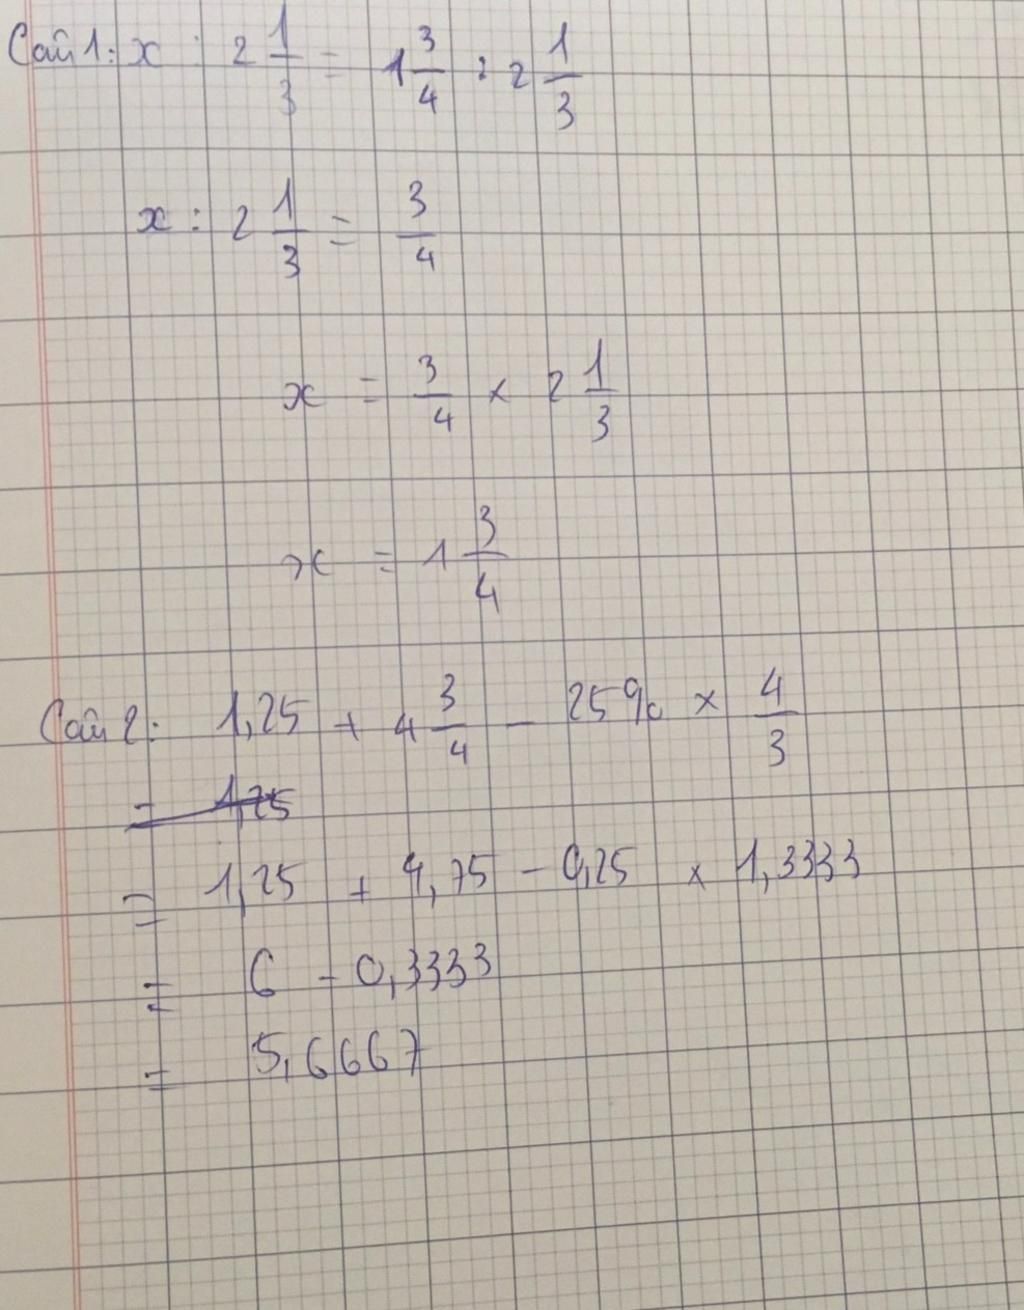 Câu 1: x : 2 1/3 = 1 3/4 : 2 1/3
x : 2 1/3 = 3/4
x = 3/4 × 2 1/3
x = 1 3/4
Câu 2: 1,25 + 4 3/4 - 25% × 4/3
= 1,25
= 1,25 + 4,75 - 0,25 × 1,3333
= 6 - 0,3333
= 5,6667